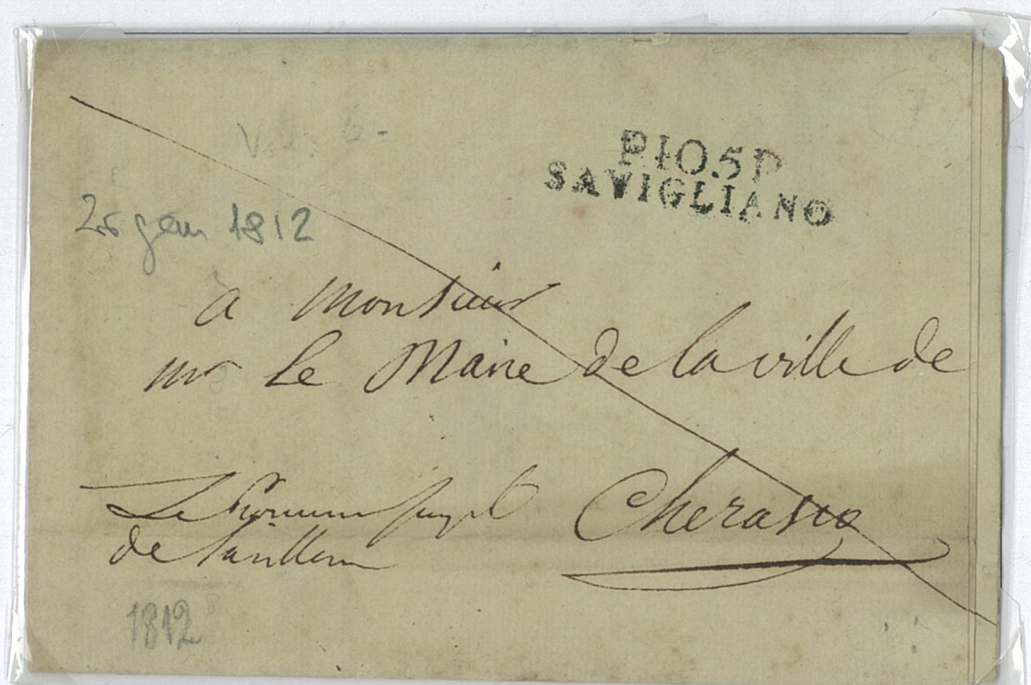 P.105.P.
SAVIGLIANO
26 gen 1812
a Monsieur
mr Le Maire de la ville de
Cherasco
Le
de
1812